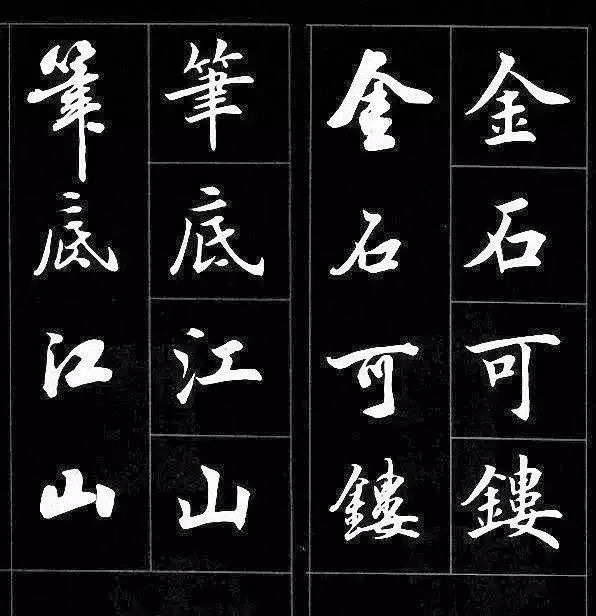 金石可鏤
金石可鏤
筆底江山
筆底江山